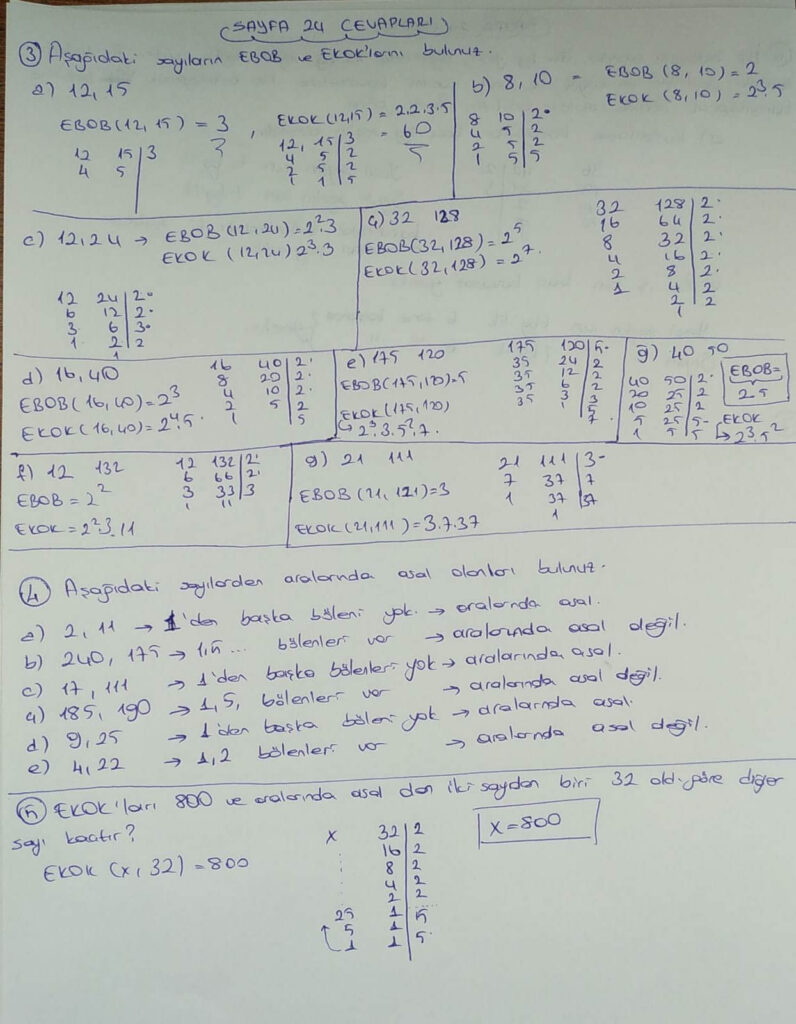 (SAYFA 24 CEVAPLARI)
③ Aşağıdaki sayıların EBOB ve EKOK'larını bulunuz.
a) 12, 15
EBOB(12, 15) = 3
3
12 15 | 3
4 5
, EKOK(12,15) = 2.2.3.5
= 60
5
12, 15 | 3
4 5 | 2
2 5 | 2
1 1 | 5
b) 8, 10 = EBOB (8, 10) = 2
EKOK (8, 10) = 2³.5
8 10 | 2.
4 5 | 2
2 5 | 2
1 5 | 5
c) 12, 24 → EBOB (12, 24) = 2².3
EKOK (12, 24) 2³.3
12 24 | 2.
6 12 | 2.
3 6 | 3.
1 2 | 2
1
ç) 32 128
EBOB(32, 128) = 2⁵
EKOK(32, 128) = 2⁷.
32 128 | 2.
16 64 | 2.
8 32 | 2.
4 16 | 2.
2 8 | 2.
1 4 | 2
2 | 2
1
d) 16, 40
EBOB(16, 40) = 2³
EKOK(16, 40) = 2⁴.5.
16 40 | 2.
8 20 | 2.
4 10 | 2.
2 5 | 2
1 | 5
e) 175 120
EBOB(175, 120) = 5
EKOK(175, 120)
↳ 2³.3.5².7.
175 120 | 5.
35 24 | 2
35 12 | 2
35 6 | 2
35 3 | 3
1 | 5
7
ğ) 40 50
40 50 | 2.
20 25 | 2
10 25 | 2
5 25 | 5.
1 5 | 5
EBOB =
2.5
EKOK
↳ 2³.5²
f) 12 132
EBOB = 2²
EKOK = 2².3.11
12 132 | 2.
6 66 | 2.
3 33 | 3
1 11
g) 21 111
EBOB (21, 121) = 3
EKOK (21, 111) = 3.7.37
21 111 | 3.
7 37 | 7
1 37 | 37
1
④ Aşağıdaki sayılardan aralarında asal olanları bulunuz.
a) 2, 11 → 1'den başka böleni yok. → aralarında asal.
b) 240, 175 → 1,5 ... bölenleri var → aralarında asal değil.
c) 17, 111 → 1'den başka bölenleri yok → aralarında asal.
ç) 185, 190 → 1, 5, bölenleri var → aralarında asal değil.
d) 9, 25 → 1'den başka böleni yok → aralarında asal.
e) 4, 22 → 1, 2 bölenleri var → aralarında asal değil.
⑤ EKOK'ları 800 ve aralarında asal olan iki sayıdan biri 32 old. göre diğer
sayı kaçtır?
EKOK (x, 32) = 800
x 32 | 2
16 | 2
8 | 2
4 | 2
2 | 2
25 1 | 5
5 1 |
1 1 | 5
x = 800